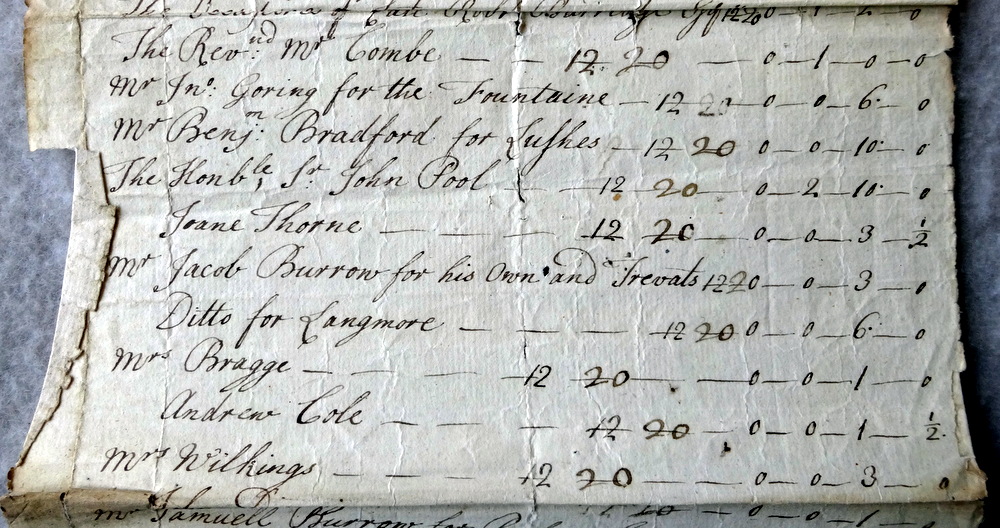 of Late Robt Burridge Esqr 12 20 0 — 1 — 2 — 0
The Revnd: Mr Combe — — 12 20 — 0 — 1 — 0 — 0
Mr Jno: Goring for the Fountaine — 12 20 0 — 0 — 6 — 0
Mr Benjm: Bradford for Lushes — 12 20 0 — 0 — 10 — 0
The Honble, Sr John Pool — — 12 20 — 0 — 2 — 10 — 0
Joane Thorne — — — — 12 20 — 0 — 0 — 3 — ½
Mr Jacob Burrow for his Own and Trevats 12 20 — 0 — 3 — 0
Ditto for Langmore — — — — 12 20 0 — 0 — 6 — 0
Mrs Bragge — — — — 12 20 — — 0 — 0 — 1 — 0
Andrew Cole — — — — 12 20 — 0 — 0 — 1 — ½
Mrs Wilkings — — — 12 20 — — 0 — 0 — 3 — 0
Mr Samuell Burrow for 12 20 — 0 — 0 — 1 — 0